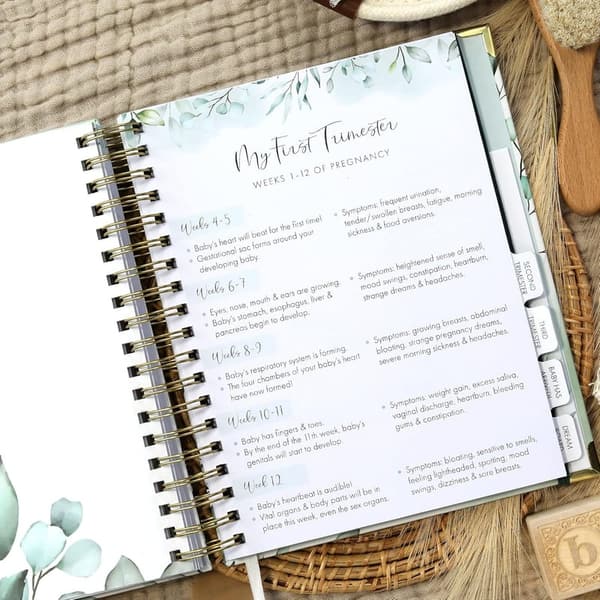 My First Trimester
WEEKS 1-12 OF PREGNANCY
Weeks 4-5
Baby's heart will beat for the first time!
Gestational sac forms around your
developing baby.
Symptoms: frequent urination,
tender/swollen breasts, fatigue, morning
sickness & food aversions.
Weeks 6-7
Eyes, nose, mouth & ears are growing.
Baby's stomach, esophagus, liver &
pancreas begin to develop.
Symptoms: heightened sense of smell,
mood swings, constipation, heartburn,
strange dreams & headaches.
Weeks 8-9
Baby's respiratory system is forming.
The four chambers of your baby's heart
have now formed!
Symptoms: growing breasts, abdominal
bloating, strange pregnancy dreams,
severe morning sickness & headaches.
Weeks 10-11
Baby has fingers & toes.
By the end of the 11th week, baby's
genitals will start to develop.
Symptoms: weight gain, excess saliva,
vaginal discharge, heartburn, bleeding
gums & constipation.
Week 12
Baby's heartbeat is audible!
Vital organs & body parts will be in
place this week, even the sex organs.
Symptoms: bloating, sensitive to smells,
feeling lightheaded, spotting, mood
swings, dizziness & sore breasts.
SECOND
TRIMESTER
THIRD
TRIMESTER
BABY HAS
DREAM
b